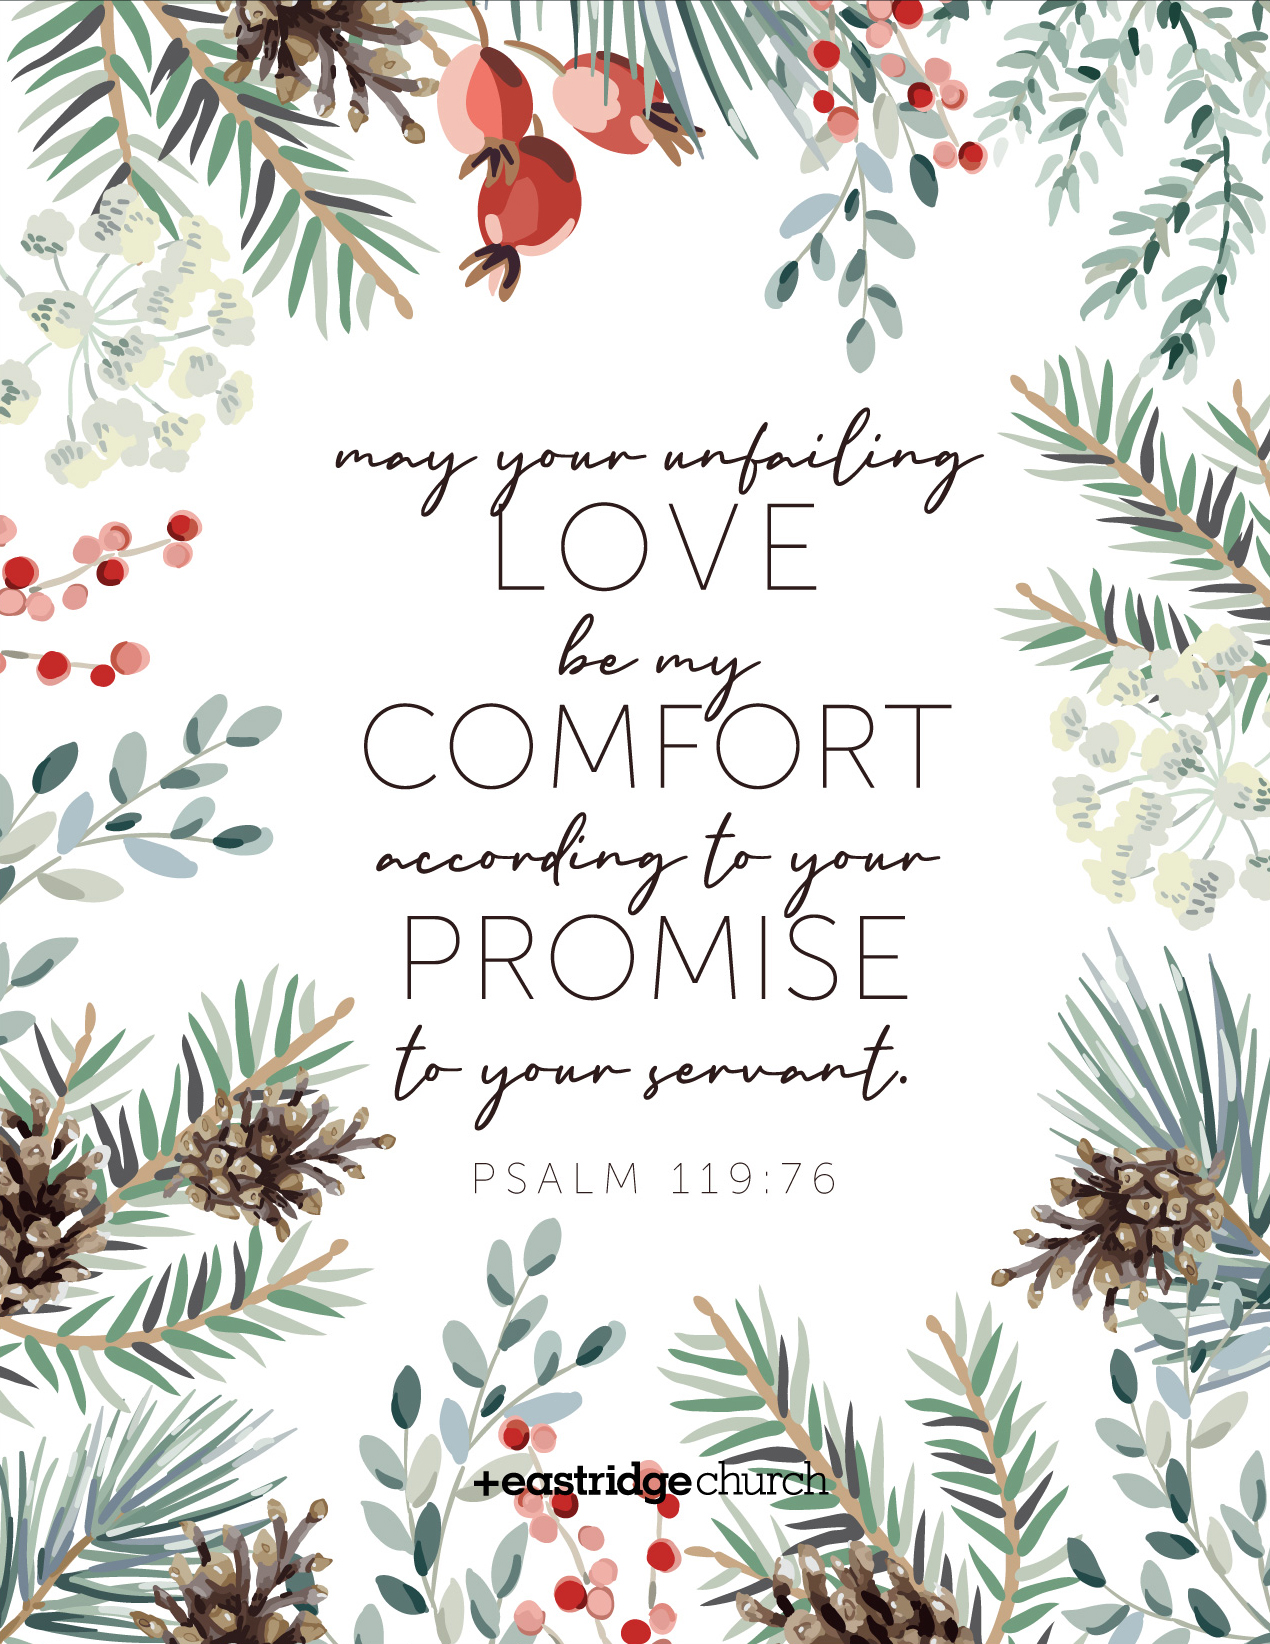 may your unfailing
LOVE
be my
COMFORT
according to your
PROMISE
to your servant.
PSALM 119:76
+eastridge church